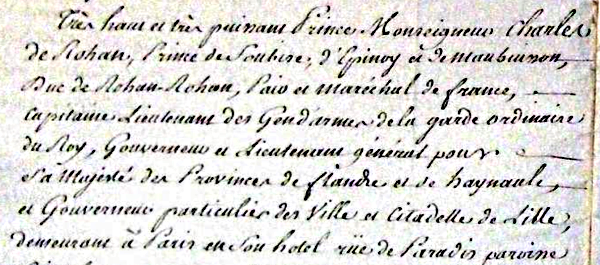 Très haut et très puissant Prince Monseigneur Charles
de Rohan, Prince de Soubise, d'Epinoy et de Maubuisson,
Duc de Rohan-Rohan, Pair et Maréchal de france,
Capitaine Lieutenant des Gendarmes de la garde ordinaire
du Roy, Gouverneur et Lieutenant général pour
Sa Majesté des Provinces de flandre et de haynault,
et Gouverneur particulier des Ville et Citadelle de Lille,
demeurant à Paris en son hotel rüe de Paradis paroisse